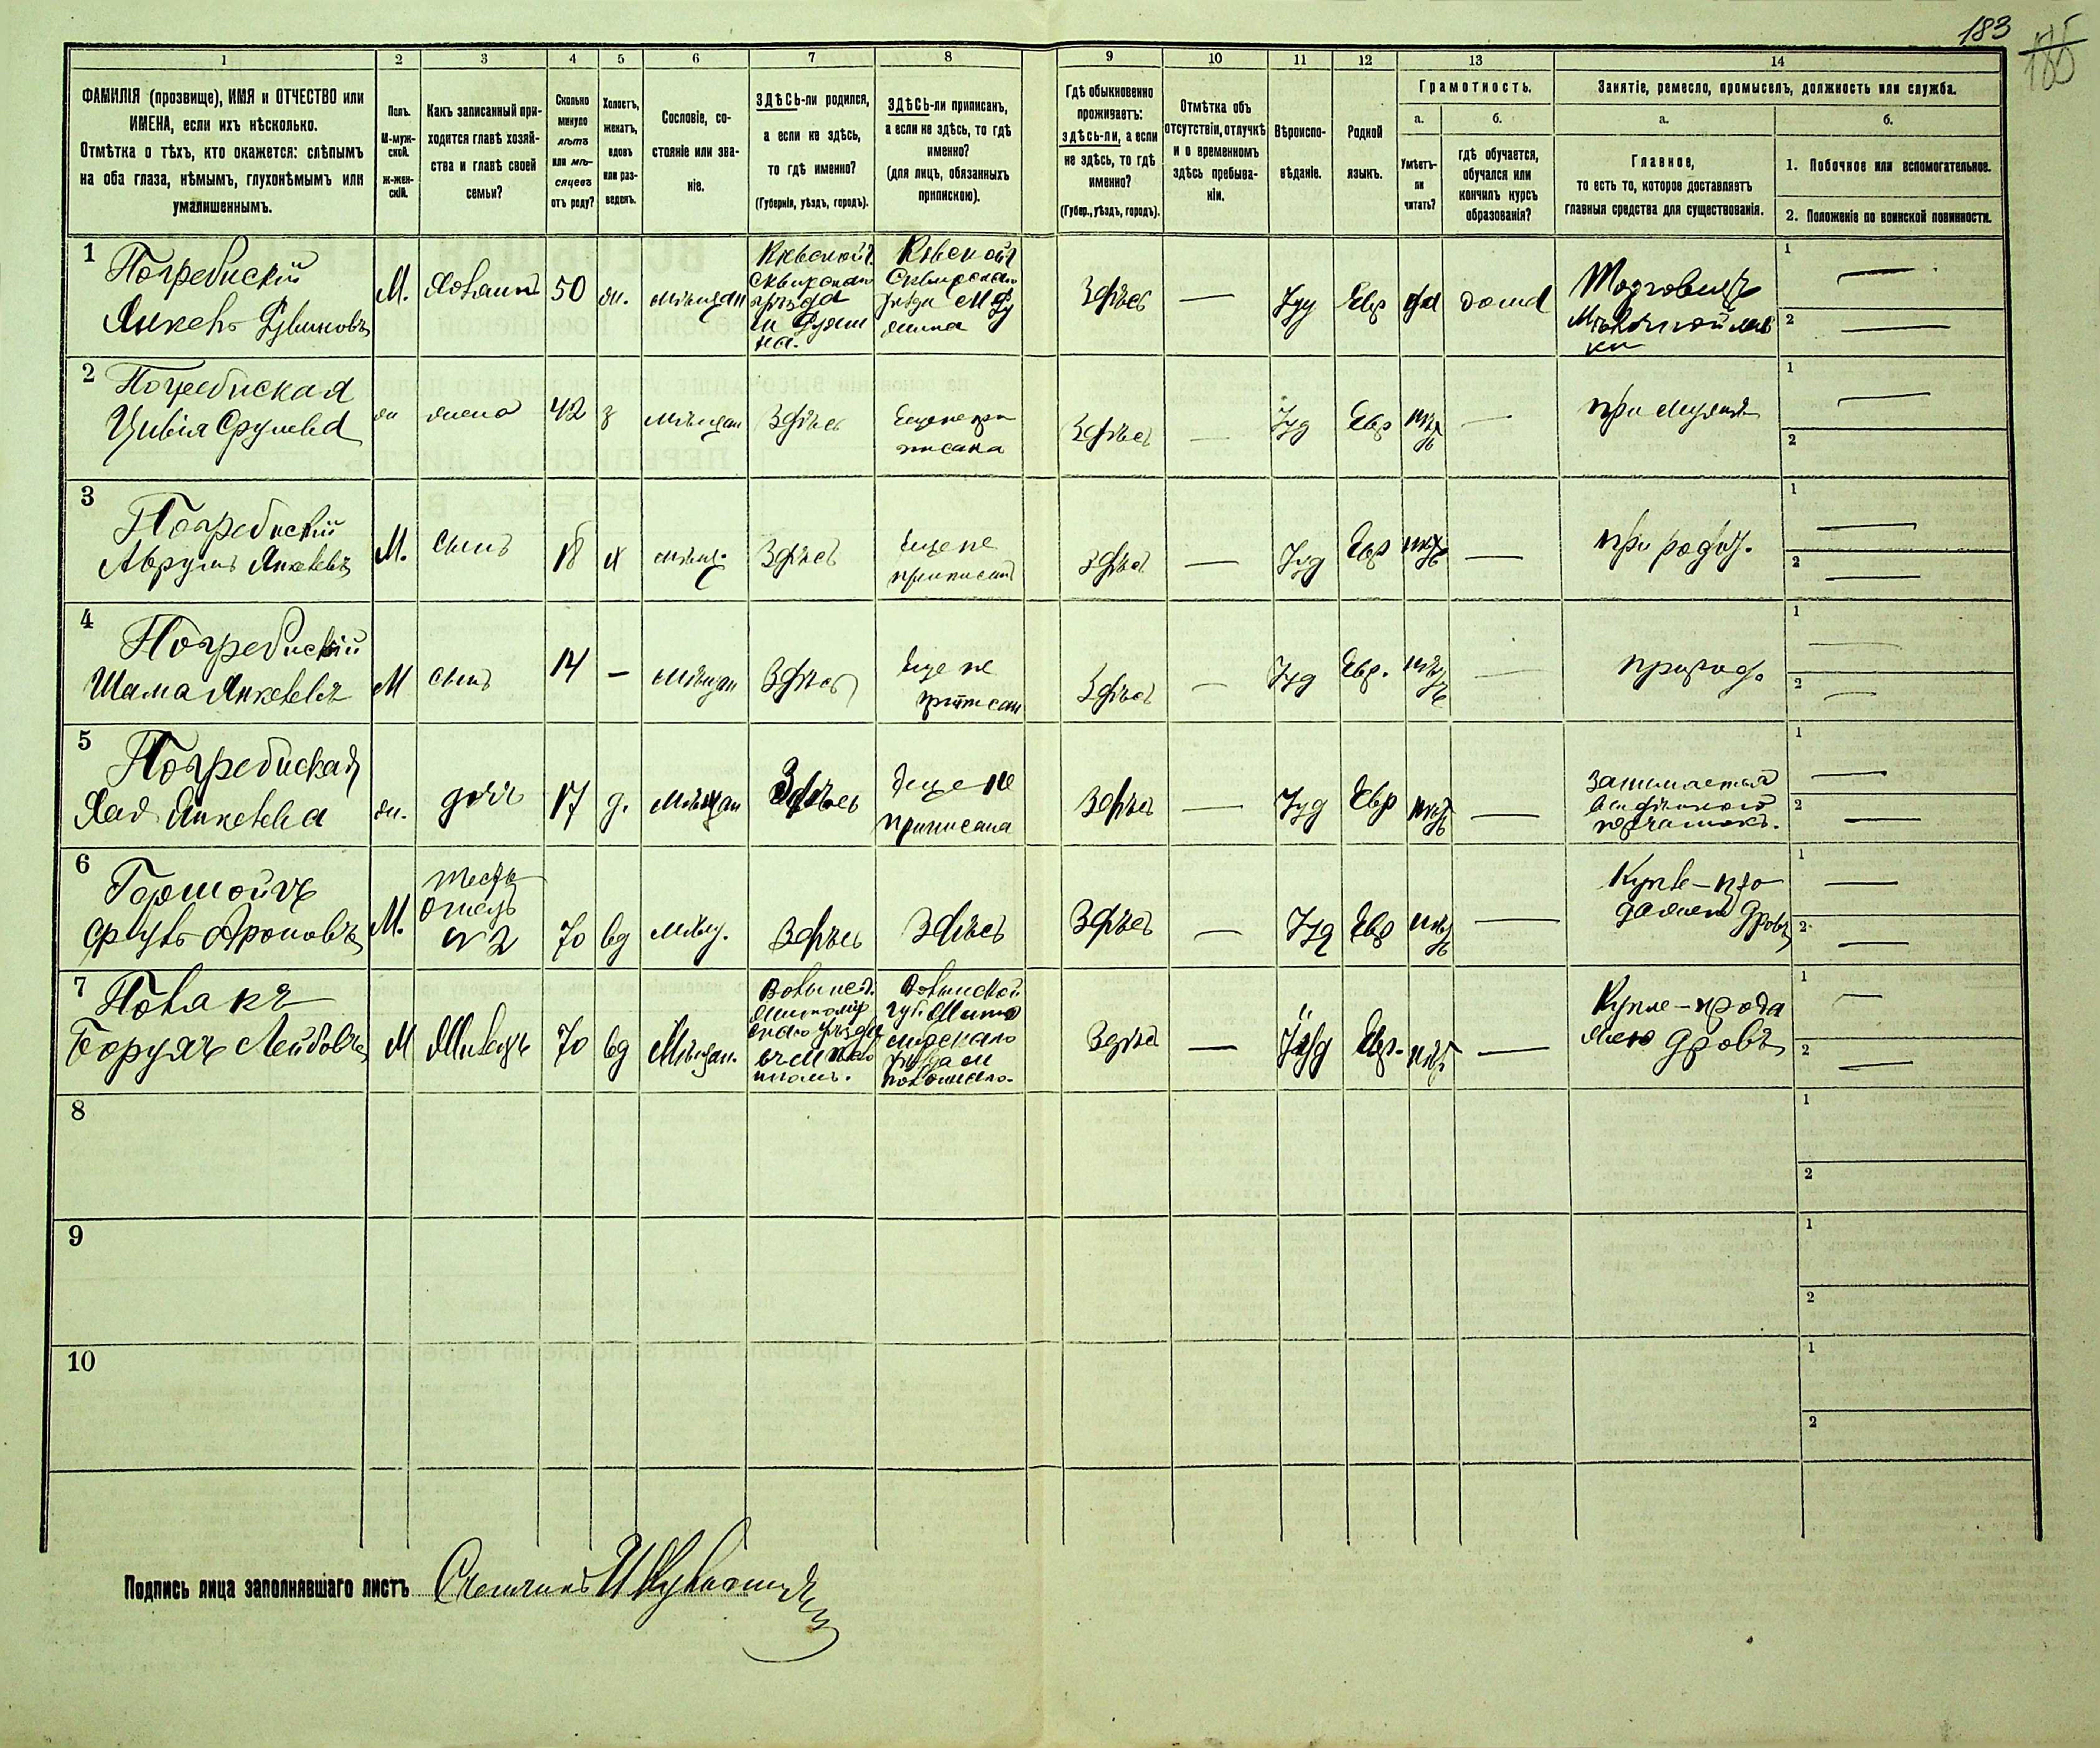 183
185
1 2 3 4 5 6 7 8 9 10 11 12 13 14
ФАМИЛІЯ (прозвище), ИМЯ и ОТЧЕСТВО или
ИМЕНА, если ихъ нѣсколько.
Отмѣтка о тѣхъ, кто окажется: слѣпымъ
на оба глаза, нѣмымъ, глухонѣмымъ или
умалишеннымъ.
Полъ.
М-муж-
ской.
ж-жен-
скій.
Какъ записанный при-
ходится главѣ хозяй-
ства и главѣ своей
семьи?
Сколько
минуло
лѣтъ
или мѣ-
сяцевъ
отъ роду?
Холостъ,
женатъ,
вдовъ
или раз-
веденъ.
Сословіе, со-
стояніе или зва-
ніе.
ЗДѢСЬ-ли родился,
а если не здѣсь,
то гдѣ именно?
(Губернія, уѣздъ, городъ).
ЗДѢСЬ-ли приписанъ,
а если не здѣсь, то гдѣ
именно?
(для лицъ, обязанныхъ
припискою).
Гдѣ обыкновенно
проживаетъ:
здѣсь-ли, а если
не здѣсь, то гдѣ
именно?
(Губер., уѣздъ, городъ).
Отмѣтка объ
отсутствіи, отлучкѣ
и о временномъ
здѣсь пребыва-
ніи.
Вѣроиспо-
вѣданіе.
Родной
языкъ.
Грамотность.
а.
Умѣетъ-
ли
читать?
б.
гдѣ обучается,
обучался или
кончилъ курсъ
образованія?
Занятіе, ремесло, промыселъ, должность или служба.
а.
Главное,
то есть то, которое доставляетъ
главныя средства для существованія.
б.
1. Побочное или вспомогательное.
2. Положеніе по воинской повинности.
1
Погребискій
Янкель Рувиновъ
М.
Хозяинъ
50
ж.
мѣщан
Кіевской г.
Сквирскаго
уѣзда
м Ружи
на.
Кіевской г
Сквирскаго
уѣзда м Ру
жина
Здѣсь
—
Іуд
Евр
да
дома
Торговецъ
Мѣлочной лав
ки
1 —
2 —
2
Погребиская
Цивія Срулева
ж
жена
42
з
мѣщан
Здѣсь
Еще не при
писана
Здѣсь
—
Іуд
Евр
нѣтъ
—
при мужѣ
1 —
2
3
Погребискій
Аврумъ Янкелевъ
М.
сынъ
18
х
мѣщ.
Здѣсь
Еще не
приписанъ
здѣсь
—
Іуд
Евр
нѣтъ
—
при родит.
1 —
2 —
4
Погребискій
Шама Янкелевъ
М
сынъ
14
—
Мѣщан
Здѣсь
Еще не
приписан
Здѣсь
—
Іуд
Евр.
нѣтъ
—
при род.
1 —
2 —
5
Погребиская
Хая Янкелева
ж.
дочь
17
д.
Мѣщан
Здѣсь
Еще не
приписана
Здѣсь
—
Іуд
Евр
нѣтъ
—
занимается
1 —
2 —
6
Сруль Ароновъ
М.
тесть
отецъ
№ 2
70
вд
мѣщ.
Здѣсь
Здѣсь
Здѣсь
—
Іуд
Евр
нѣтъ
—
Купле-про
дажею дровъ
1 —
2 —
7
Борухъ Лейбовъ
М
Жилецъ
70
вд
Мѣщан.
Волынск.
Житомир
скаго уѣзда
Волынской
губ. Жито
мирскаго
уѣзда м
Здѣсь
—
Іуд
Евр.
нѣт
—
Купле-прода
жею дровъ
1 —
2 —
8
1
2
9
1
2
10
1
2
Подпись лица заполнявшаго листъ Счетчикъ